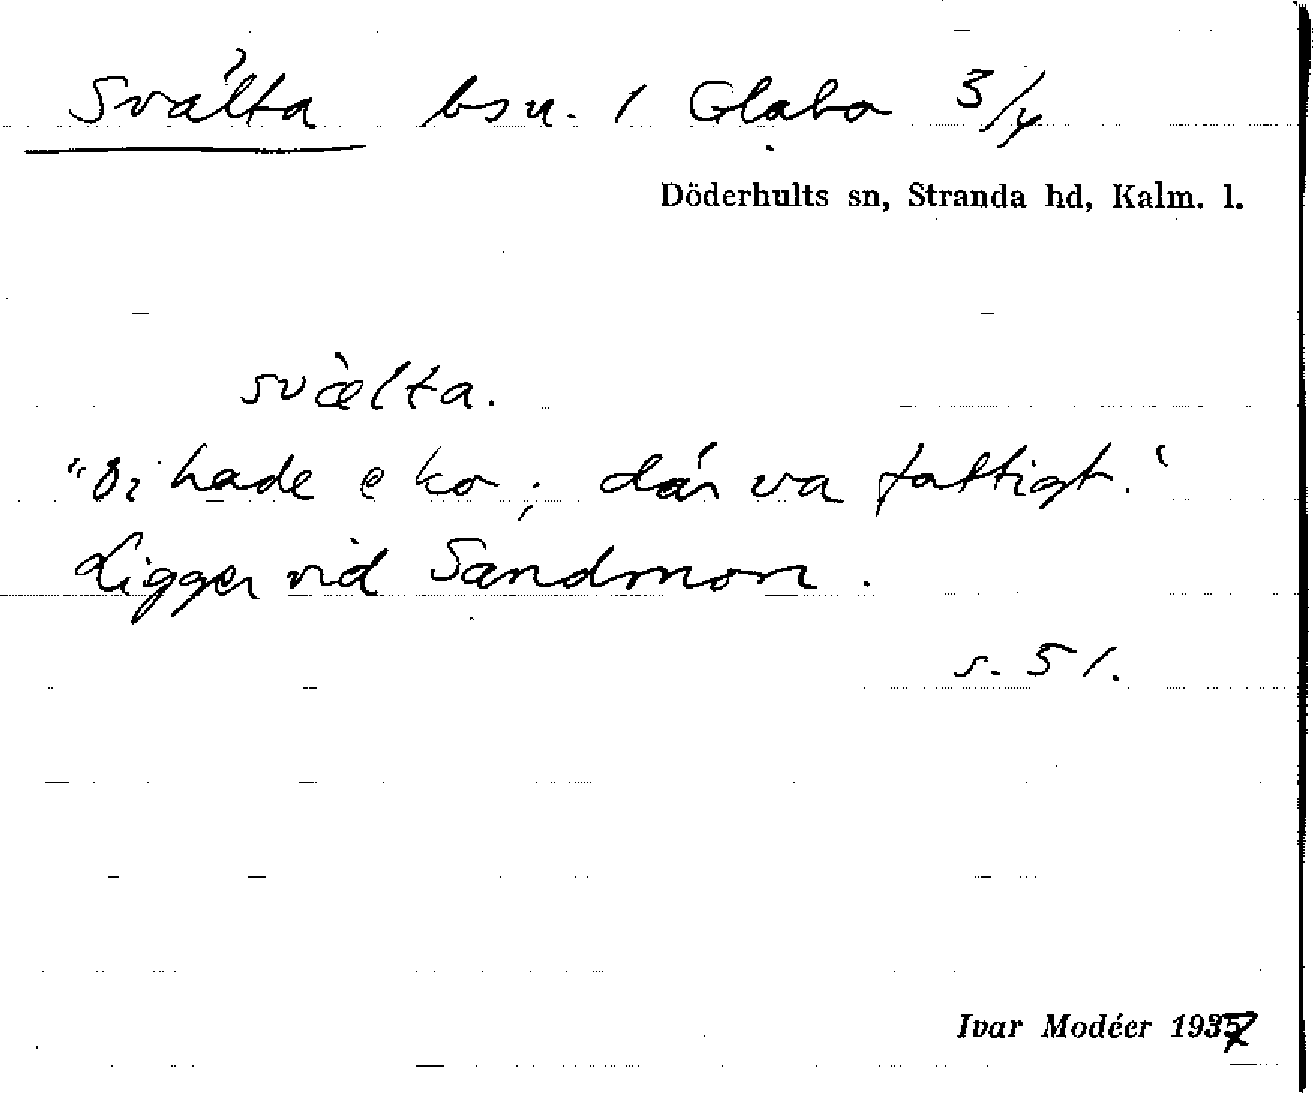 Svälta bsu. 1 Glabo 3/4
Döderhults sn, Stranda hd, Kalm. l.
svælta.
"Di hade e ko; där va fattigt."
Ligger vid Sandmon.
s. 51.
Ivar Modéer 1937